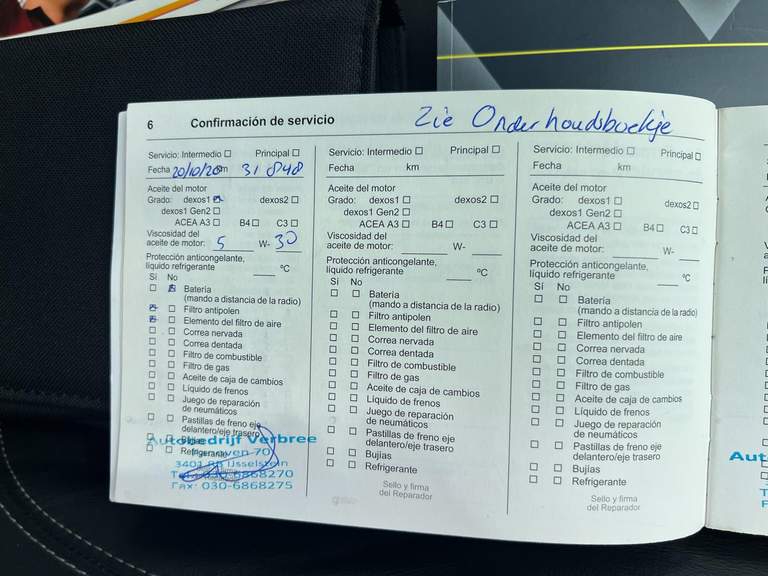 6 Confirmación de servicio
Zie Onderhoudsboekje
Servicio: Intermedio Principal
Fecha 20/10/20 km 31 848
Aceite del motor
Grado: dexos1 dexos2
dexos1 Gen2
ACEA A3 B4 C3
Viscosidad del
aceite de motor: 5 W- 30
Protección anticongelante,
líquido refrigerante °C
Sí No
Batería
(mando a distancia de la radio)
Filtro antipolen
Elemento del filtro de aire
Correa nervada
Correa dentada
Filtro de combustible
Filtro de gas
Aceite de caja de cambios
Líquido de frenos
Juego de reparación
de neumáticos
Pastillas de freno eje
delantero/eje trasero
Bujías
Refrigerante
Autobedrijf Verbree
70
3401 IJsselstein
030-6868270
Fax: 030-6868275
Servicio: Intermedio Principal
Fecha km
Aceite del motor
Grado: dexos1 dexos2
dexos1 Gen2
ACEA A3 B4 C3
Viscosidad del
aceite de motor: W-
Protección anticongelante,
líquido refrigerante °C
Sí No
Batería
(mando a distancia de la radio)
Filtro antipolen
Elemento del filtro de aire
Correa nervada
Correa dentada
Filtro de combustible
Filtro de gas
Aceite de caja de cambios
Líquido de frenos
Juego de reparación
de neumáticos
Pastillas de freno eje
delantero/eje trasero
Bujías
Refrigerante
Sello y firma
del Reparador
Servicio: Intermedio Principal
Fecha km
Aceite del motor
Grado: dexos1 dexos2
dexos1 Gen2
ACEA A3 B4 C3
Viscosidad del
aceite de motor: W-
Protección anticongelante,
líquido refrigerante °C
Sí No
Batería
(mando a distancia de la radio)
Filtro antipolen
Elemento del filtro de aire
Correa nervada
Correa dentada
Filtro de combustible
Filtro de gas
Aceite de caja de cambios
Líquido de frenos
Juego de reparación
de neumáticos
Pastillas de freno eje
delantero/eje trasero
Bujías
Refrigerante
Sello y firma
del Reparador